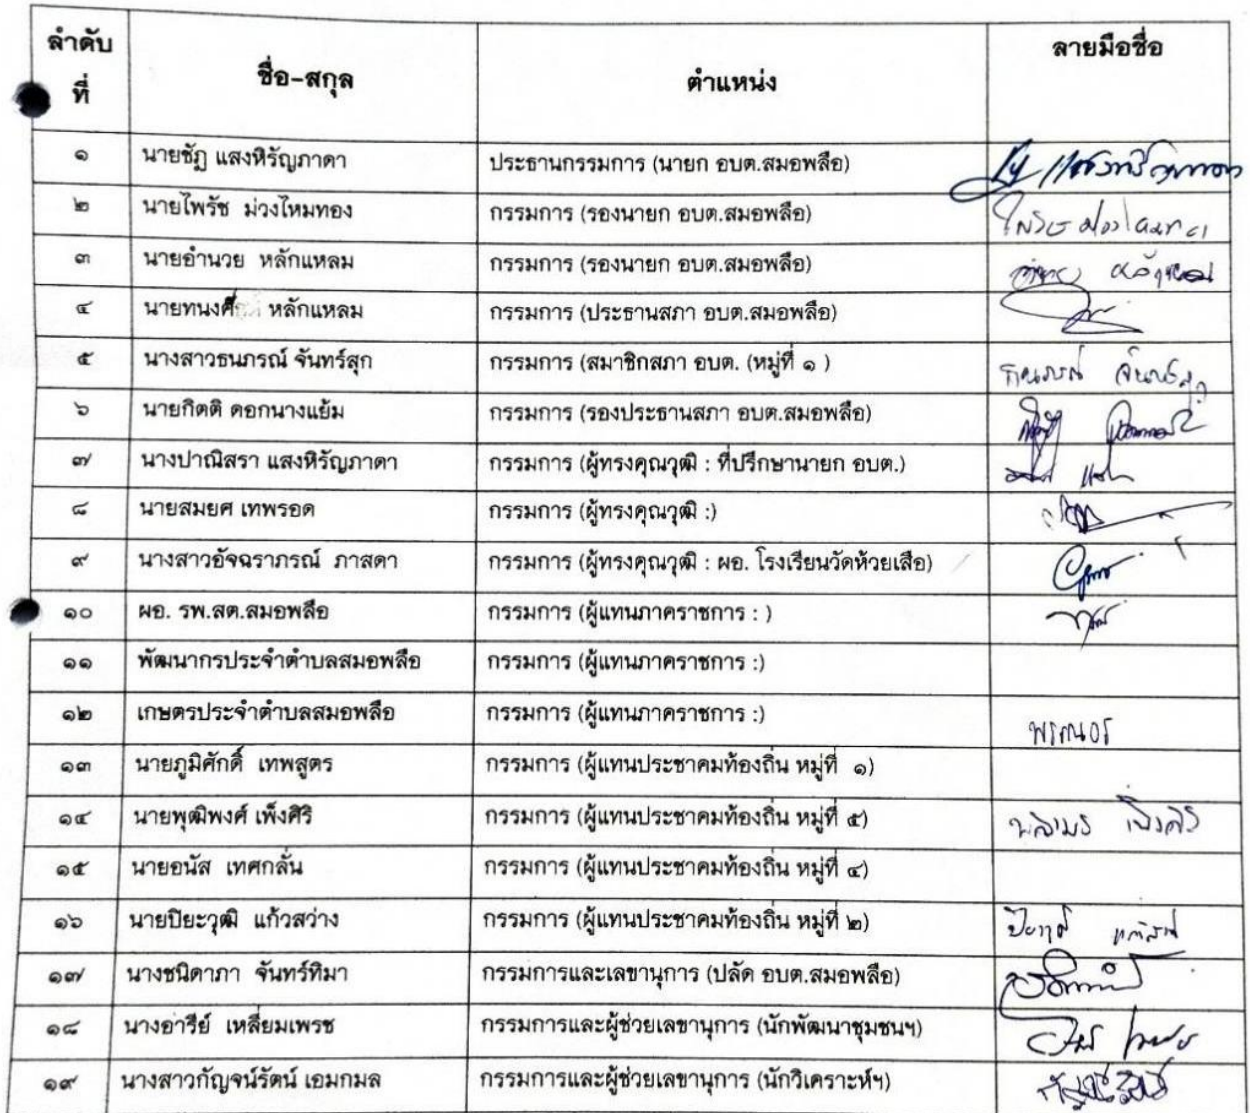 ลำดับที่ ชื่อ-สกุล ตำแหน่ง ลายมือชื่อ
๑ นายชัฎ แสงหิรัญภาดา ประธานกรรมการ (นายก อบต.สมอพลือ)
๒ นายไพรัช ม่วงไหมทอง กรรมการ (รองนายก อบต.สมอพลือ)
๓ นายอำนวย หลักแหลม กรรมการ (รองนายก อบต.สมอพลือ)
๔ หลักแหลม กรรมการ (ประธานสภา อบต.สมอพลือ)
๕ นางสาวธนภรณ์ จันทร์สุก กรรมการ (สมาชิกสภา อบต. (หมู่ที่ ๑ ) ธนภรณ์ จันทร์สุก
๖ นายกิตติ ดอกนางแย้ม กรรมการ (รองประธานสภา อบต.สมอพลือ)
๗ นางปาณิสรา แสงหิรัญภาดา กรรมการ (ผู้ทรงคุณวุฒิ : ที่ปรึกษานายก อบต.)
๘ นายสมยศ เทพรอด กรรมการ (ผู้ทรงคุณวุฒิ :)
๙ นางสาวอัจฉราภรณ์ ภาสดา กรรมการ (ผู้ทรงคุณวุฒิ : ผอ. โรงเรียนวัดห้วยเสือ)
๑๐ ผอ. รพ.สต.สมอพลือ กรรมการ (ผู้แทนภาคราชการ : )
๑๑ พัฒนากรประจำตำบลสมอพลือ กรรมการ (ผู้แทนภาคราชการ :)
๑๒ เกษตรประจำตำบลสมอพลือ กรรมการ (ผู้แทนภาคราชการ :)
๑๓ นายภูมิศักดิ์ เทพสูตร กรรมการ (ผู้แทนประชาคมท้องถิ่น หมู่ที่ ๑)
๑๔ นายพุฒิพงศ์ เพ็งศิริ กรรมการ (ผู้แทนประชาคมท้องถิ่น หมู่ที่ ๕)
๑๕ นายอนัส เทศกลั่น กรรมการ (ผู้แทนประชาคมท้องถิ่น หมู่ที่ ๔)
๑๖ นายปิยะวุฒิ แก้วสว่าง กรรมการ (ผู้แทนประชาคมท้องถิ่น หมู่ที่ ๒)
๑๗ นางชนิดาภา จันทร์ทิมา กรรมการและเลขานุการ (ปลัด อบต.สมอพลือ)
๑๘ นางอารีย์ เหลี่ยมเพรช กรรมการและผู้ช่วยเลขานุการ (นักพัฒนาชุมชนฯ)
๑๙ นางสาวกัญจน์รัตน์ เอมกมล กรรมการและผู้ช่วยเลขานุการ (นักวิเคราะห์ฯ)